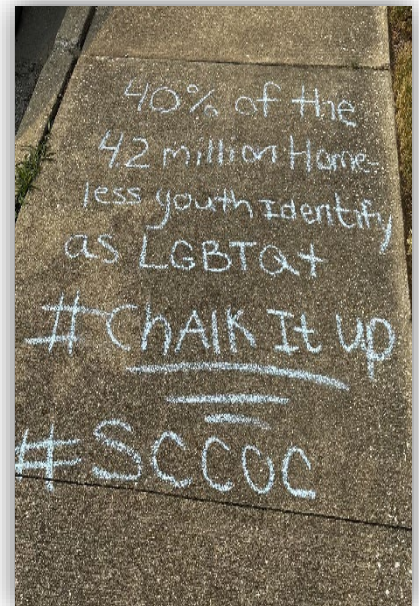 40% of the
42 million Home-
less youth Identify
as LGBTQ+
#ChAlK It up
#SCCOC